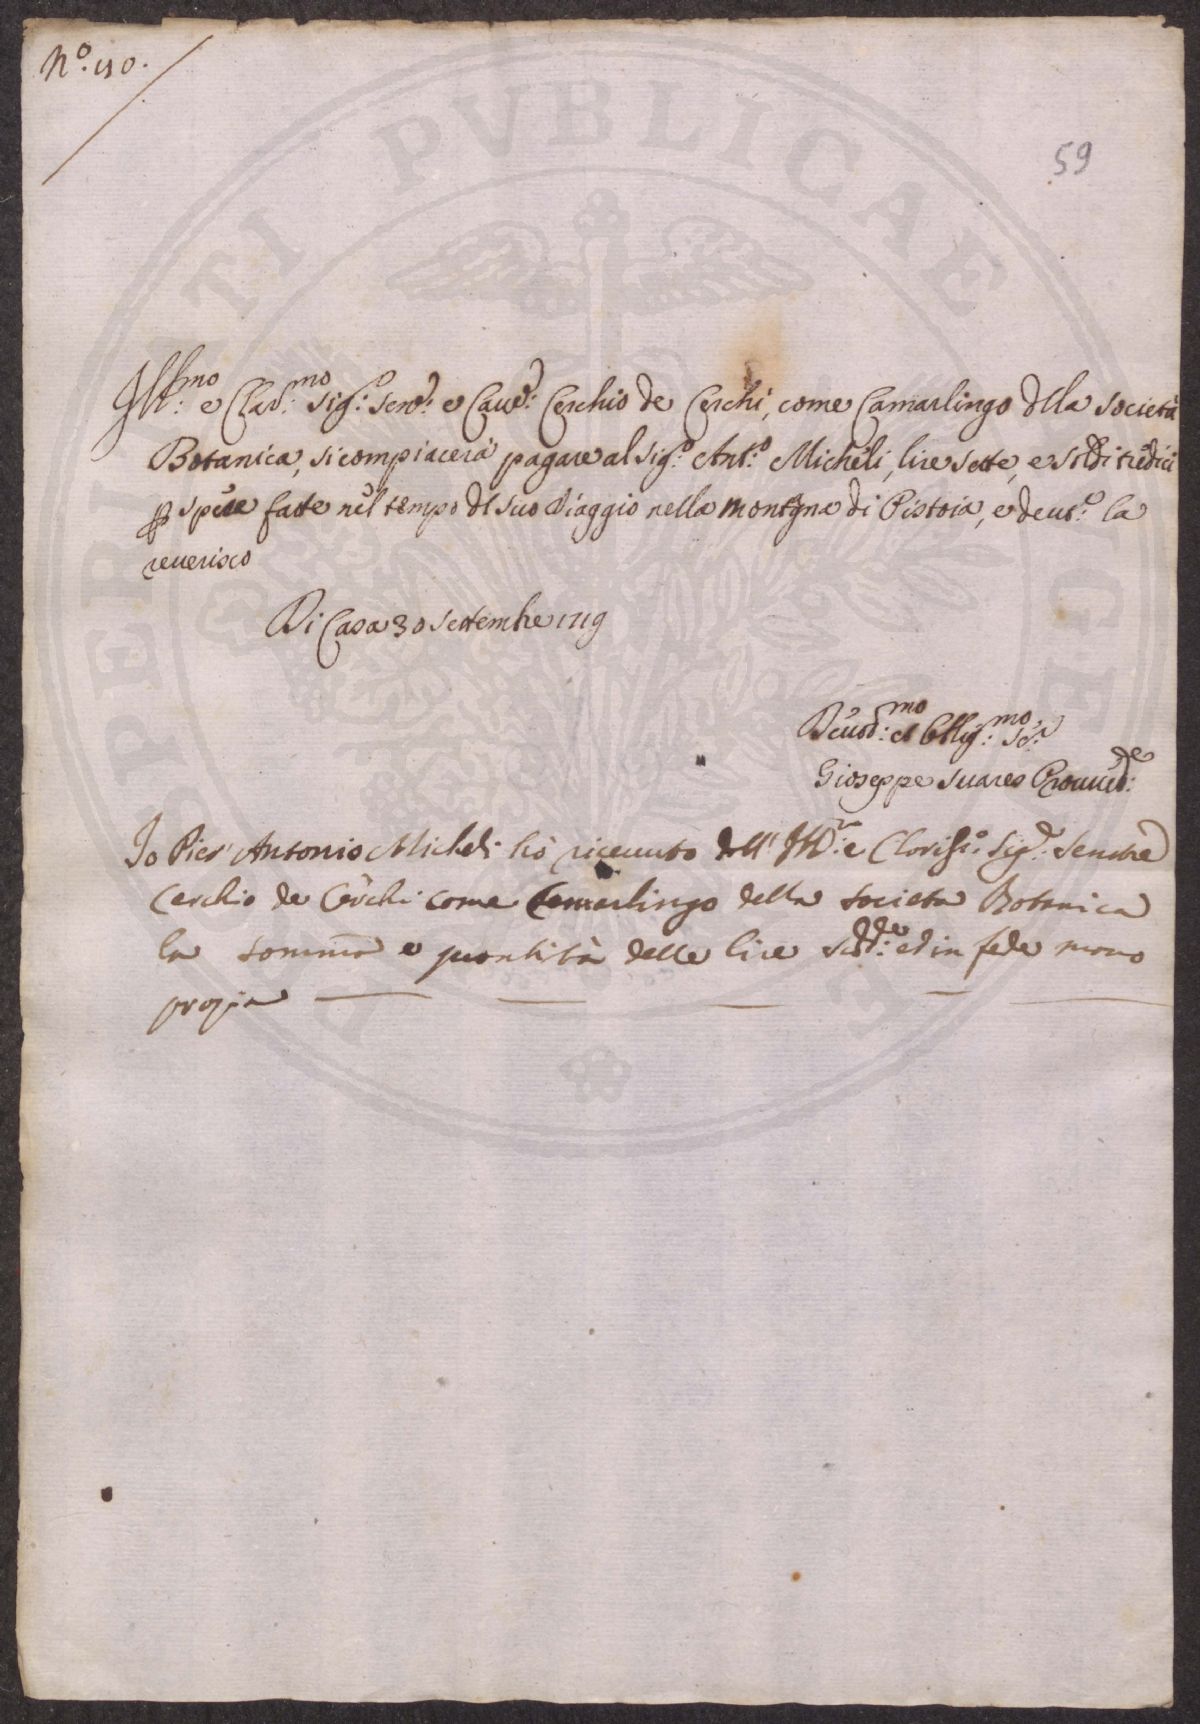 N.º 110.
59
Ill:mo e Clar:mo Sig:o Sen:e e Cav:e Cerchio de Cerchi, come Camarlingo dlla Società
Botanica, si compiacerà pagare al Sig:o Ant:o Micheli, lire sette, e soldi tredici
p spese fatte nel tempo dl suo Viaggio nella montgna di Pistoia, e deut:o la
reuerisco
Di Casa 30 Settembre 1719
Deuot:mo et Obblig:mo Se:r
Gioseppe Suares Prouued:re
Io Pier' Antonio Micheli hò riceuuto dall' Ill:e e Clariss:o Sig:r Senatre
Cerchio de Cerchi come Camarlingo della Società Botanica
la somma e quantità delle lire sud:dde ed in fede mano
propia